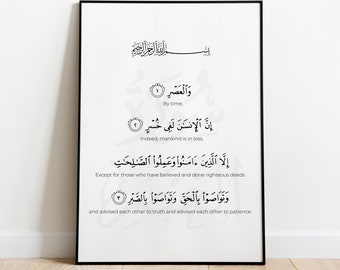 بِسْمِ اللَّهِ الرَّحْمَٰنِ الرَّحِيمِ
وَالْعَصْرِ ١
By time,
إِنَّ الْإِنسَانَ لَفِي خُسْرٍ ٢
Indeed, mankind is in loss,
إِلَّا الَّذِينَ ءَامَنُوا وَعَمِلُوا الصَّالِحَاتِ
Except for those who have believed and done righteous deeds
وَتَوَاصَوْا بِالْحَقِّ وَتَوَاصَوْا بِالصَّبْرِ ٣
and advised each other to truth and advised each other to patience.